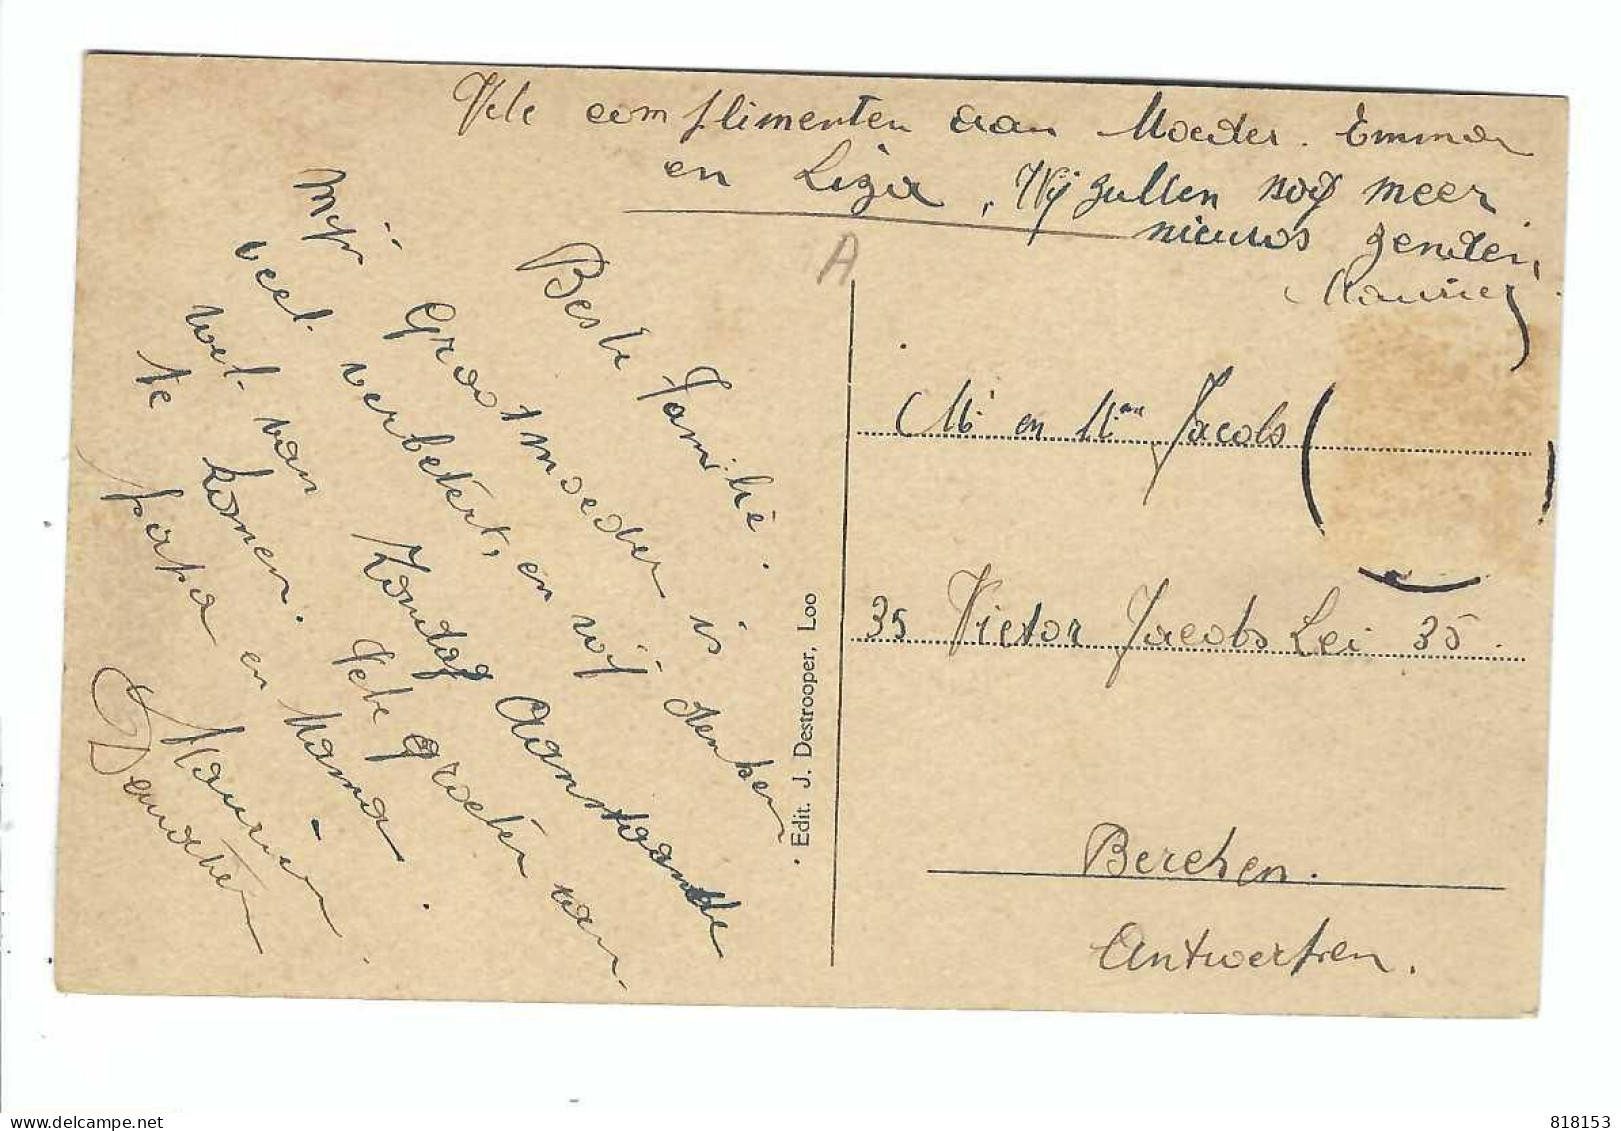 Vele complimenten aan Moeder. Emma
en Liza, Wij zullen nog meer
nieuws zenden,
Maurice
A
Beste Familie.
Mijn Grootmoeder is
veel verbetert, en wij denken
wel van Zondag Aanstaande
te komen. Vele groeten van
papa en Mama.
Maurice
Edit. J. Destrooper, Loo
Mr en Mme Jacobs
35 Victor Jacobs Lei 35.
Berchen.
Antwerpen.
818153